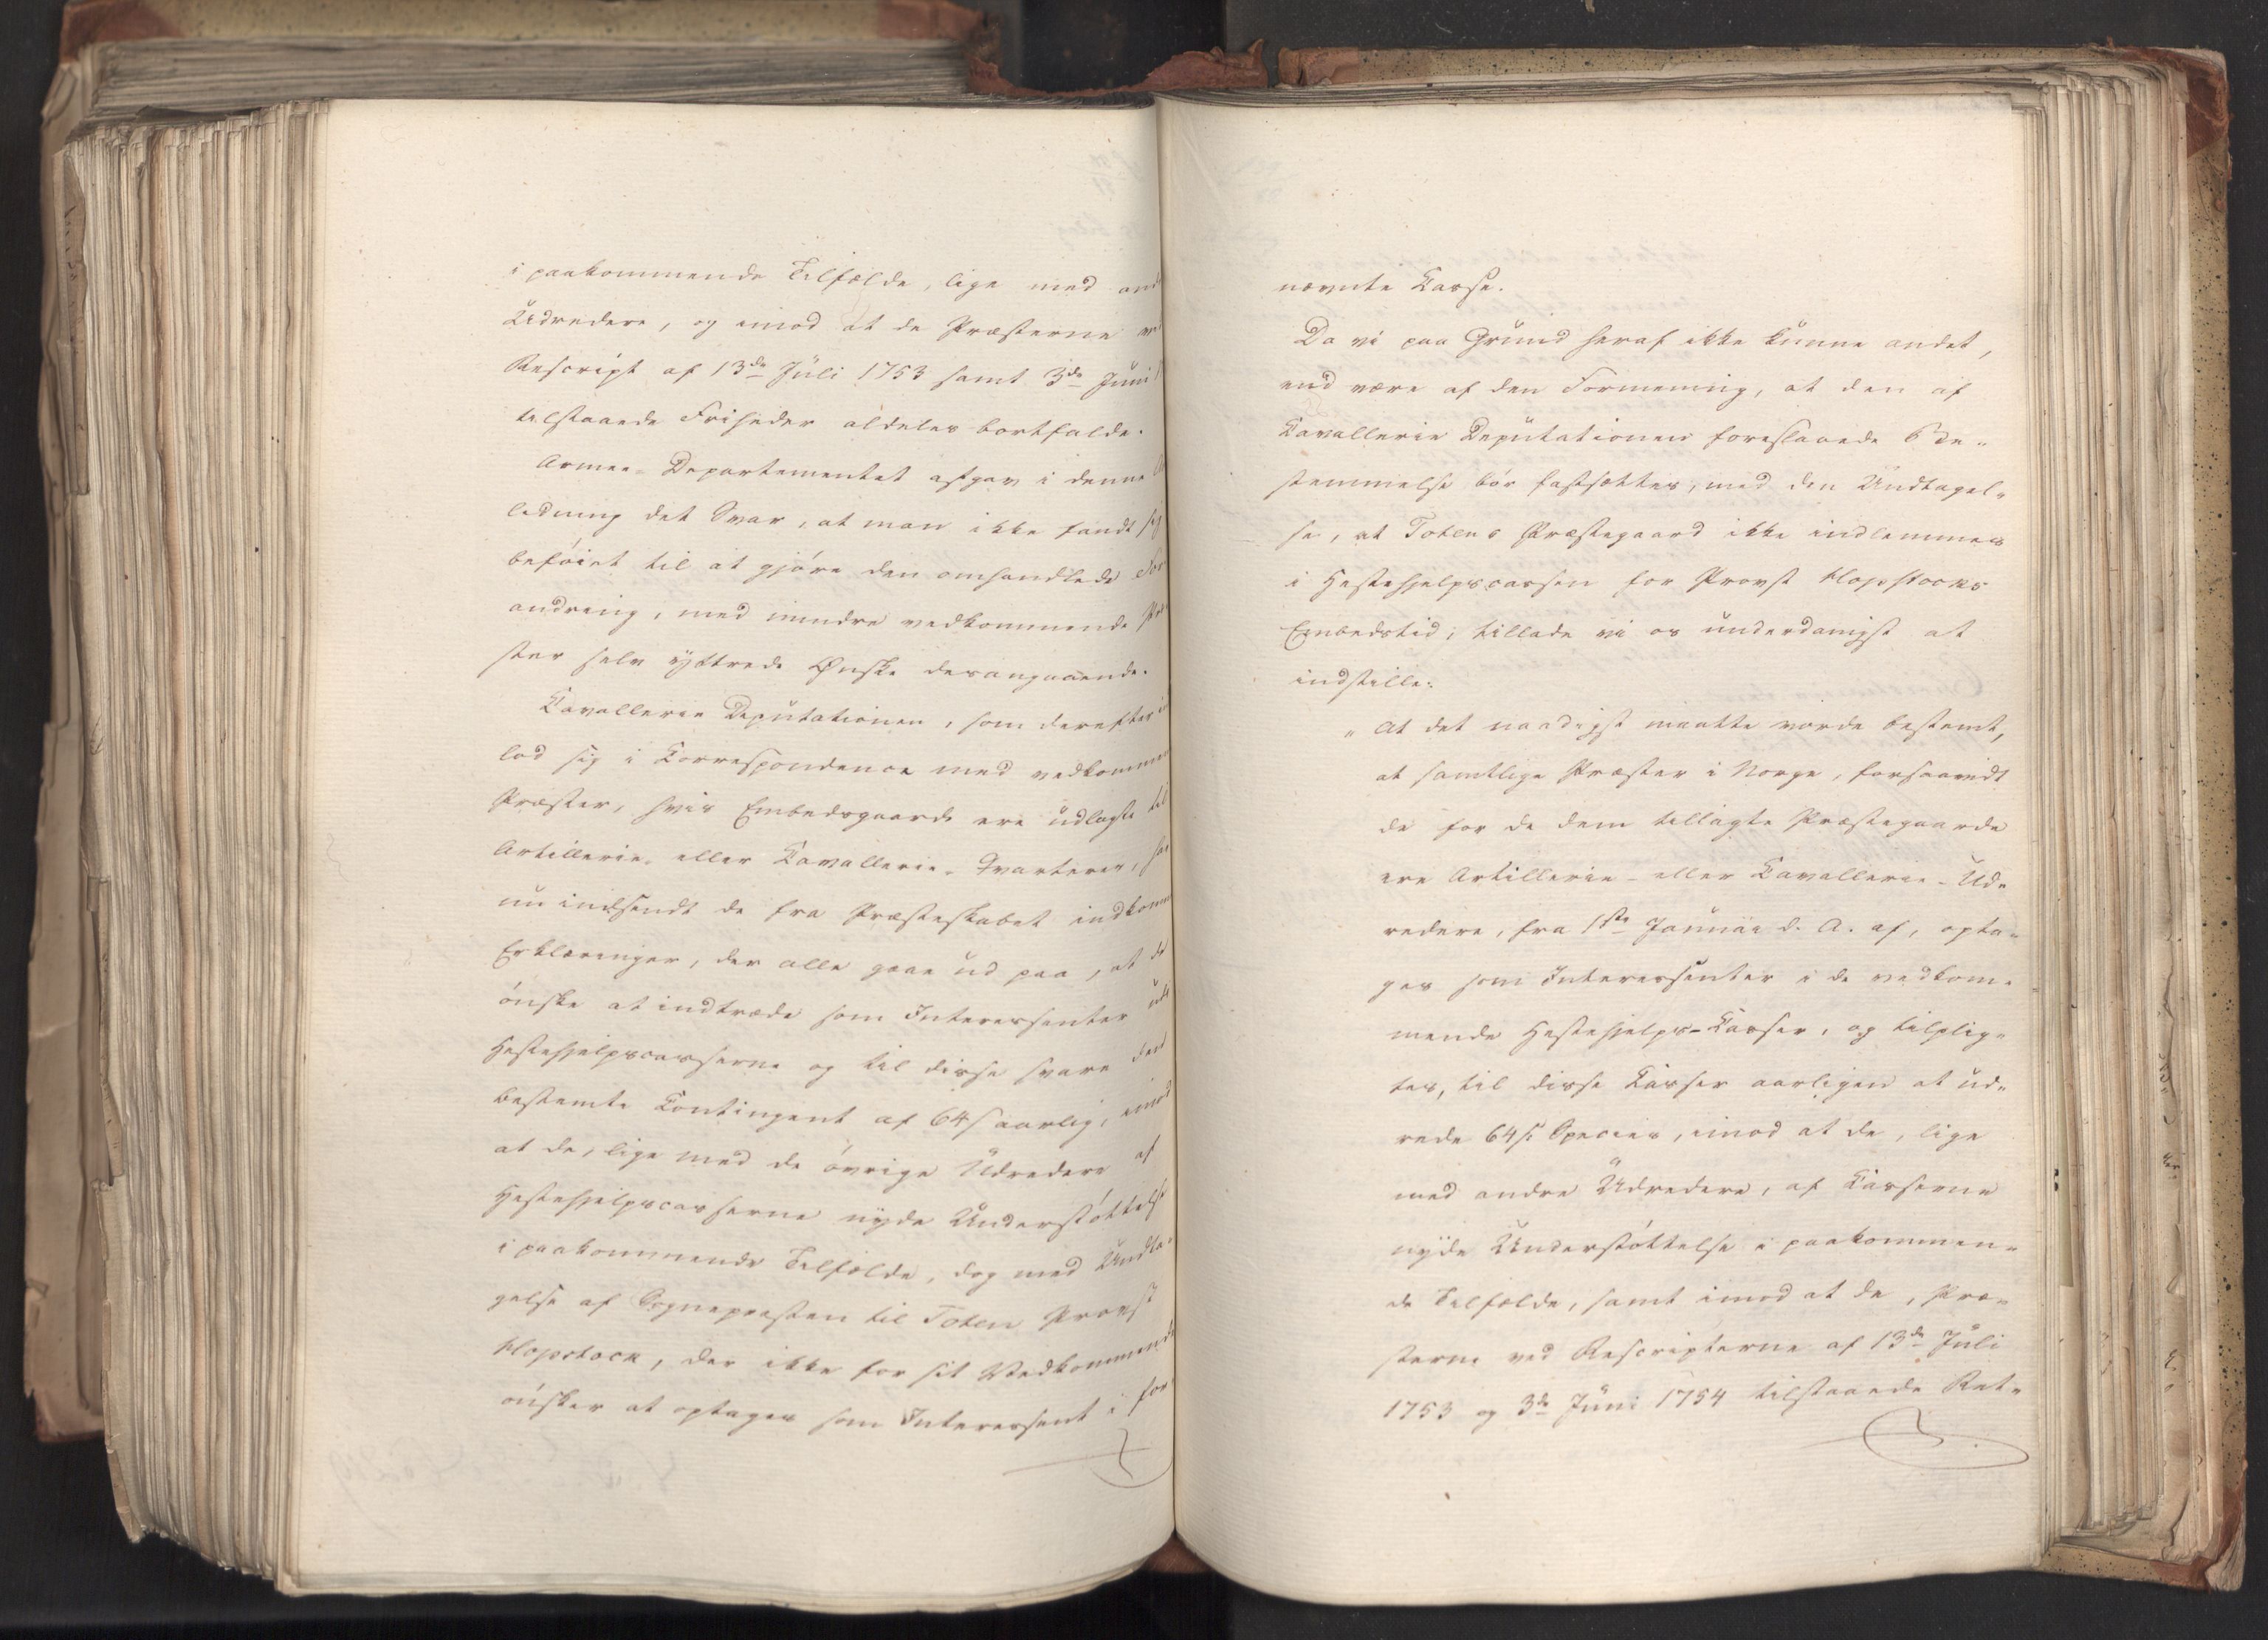 i paakommende Tilfælde, lige med and
Udredere, og imod at de Præsterne ve
Rescript af 13de Juli 1753 samt 3de Juni
tilstaaede Friheder aldeles bortfalde.
Armee-Departementet afgav i denne
ledning det Svar, at man ikke fandt sig
beføiet til at gjøre den omhandlede For
andring, med mindre vedkommende Præ
ster selv yttrede Ønske desangaaende.
Cavallerie Deputationen, som derefter
lod sig i Correspondence med vedkomme
Præster, hvis Embedsgaarde ere udlagte til
Artillerie- eller Cavallerie-Qvarterer, har
nu indsendt de fra Præsteskabet indkom
Erklæringer, der alle gaae ud paa, at de
ønske at indtræde som Interessenter udi
Hestehjelpscasserne og til disse svare den
bestemte Contingent af 64 s aarlig, imod
at de, lige med de øvrige Udredere af
Hestehjelpscasserne nyde Understøttelse
i paakommende Tilfælde, dog med Undta-
gelse af Sognepresten til Toten Provst
Hopstock, der ikke for sit Vedkommende
ønsker at optages som Interessent i for-
nævnte Casse.
Da vi paa Grund heraf ikke kunne andet,
end være af den Formening, at den af
Cavallerie Deputationen foreslaaede Be-
stemmelse bør fastsættes, med den Undtagel-
se, at Totens Præstegaard ikke indlemmes
i Hestehjelpscassen for Provst Hopstocks
Embedstid; tillade vi os underdanigst at
indstille:
"At det naadigst maatte vorde bestemt,
at samtlige Præster i Norge, forsaavidt
de for de dem tillagte Præstegaarde
ere Artillerie- eller Cavallerie-Ud-
redere, fra 1ste Januar d. A. af, opta-
ges som Interessenter i de vedkom-
mende Hestehjelps-Casser, og tilplig-
tes, til disse Casser aarligen at ud-
rede 64 s. Species, imod at de, lige
med andre Udredere, af Casserne
nyde Understøttelse i paakommen-
de Tilfælde, samt imod at de, Præ-
sterne ved Rescripterne af 13de Juli
1753 og 3de Juni 1754 tilstaaede Ret-